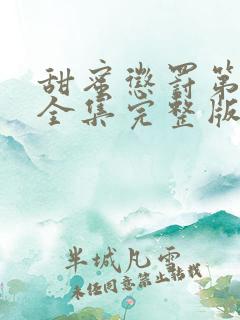 甜蜜懲罰第
全集完整版
半城凡雲
未经同意禁止转载